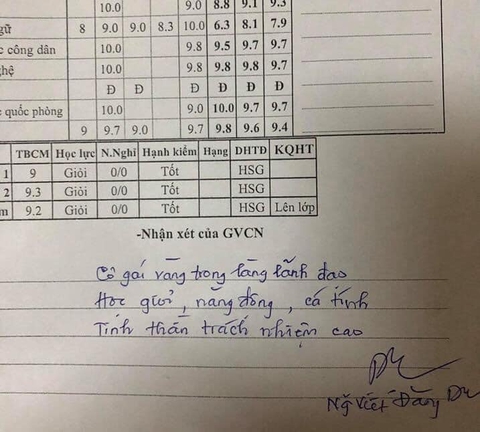 10.0 9.0 8.8 9.1 9.3
gữ 8 9.0 9.0 8.3 10.0 6.3 8.1 7.9
c công dân 10.0 9.8 9.5 9.7 9.7
ghệ 10.0 9.8 9.8 9.8 9.8
Đ Đ Đ Đ Đ Đ
c quốc phòng 10.0 9.0 10.0 9.7 9.7
9 9.7 9.0 9.7 9.8 9.6 9.4
TBCM Học lực N.Nghỉ Hạnh kiểm Hạng DHTĐ KQHT
1 9 Giỏi 0/0 Tốt HSG
2 9.3 Giỏi 0/0 Tốt HSG
m 9.2 Giỏi 0/0 Tốt HSG Lên lớp
-Nhận xét của GVCN
Cô gái vàng trong làng lãnh đạo
Học giỏi, năng động, cá tính
Tinh thần trách nhiệm cao
Ng Viết Đăng Du